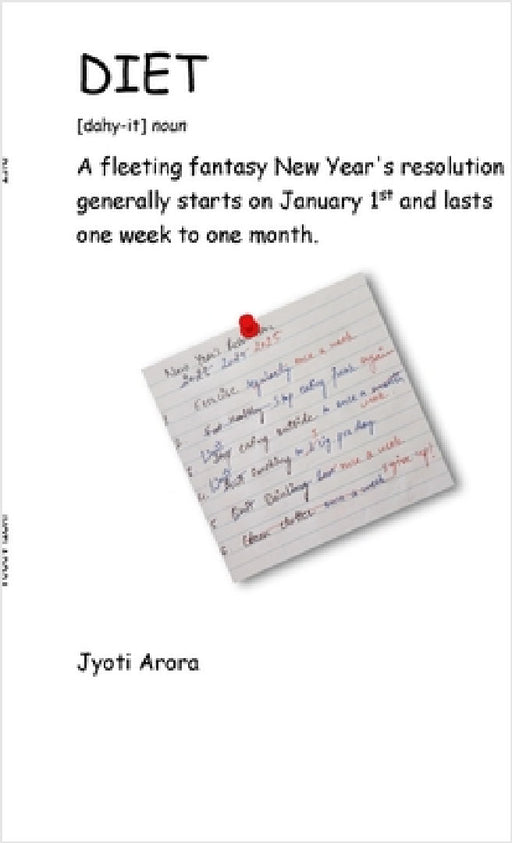 DIET
[dahy-it] noun
A fleeting fantasy New Year's resolution
generally starts on January 1st and lasts
one week to one month.
New Year's
2023 2024 2025
1. Exercise regularly once a week
Eat healthy Stop eating junk again
Stop eating outside to once a month
week
Quit smoking to 1 cig per day
5. Quit Drinking beer once a week
I give up!
6. Clean clutter once a week
Jyoti Arora